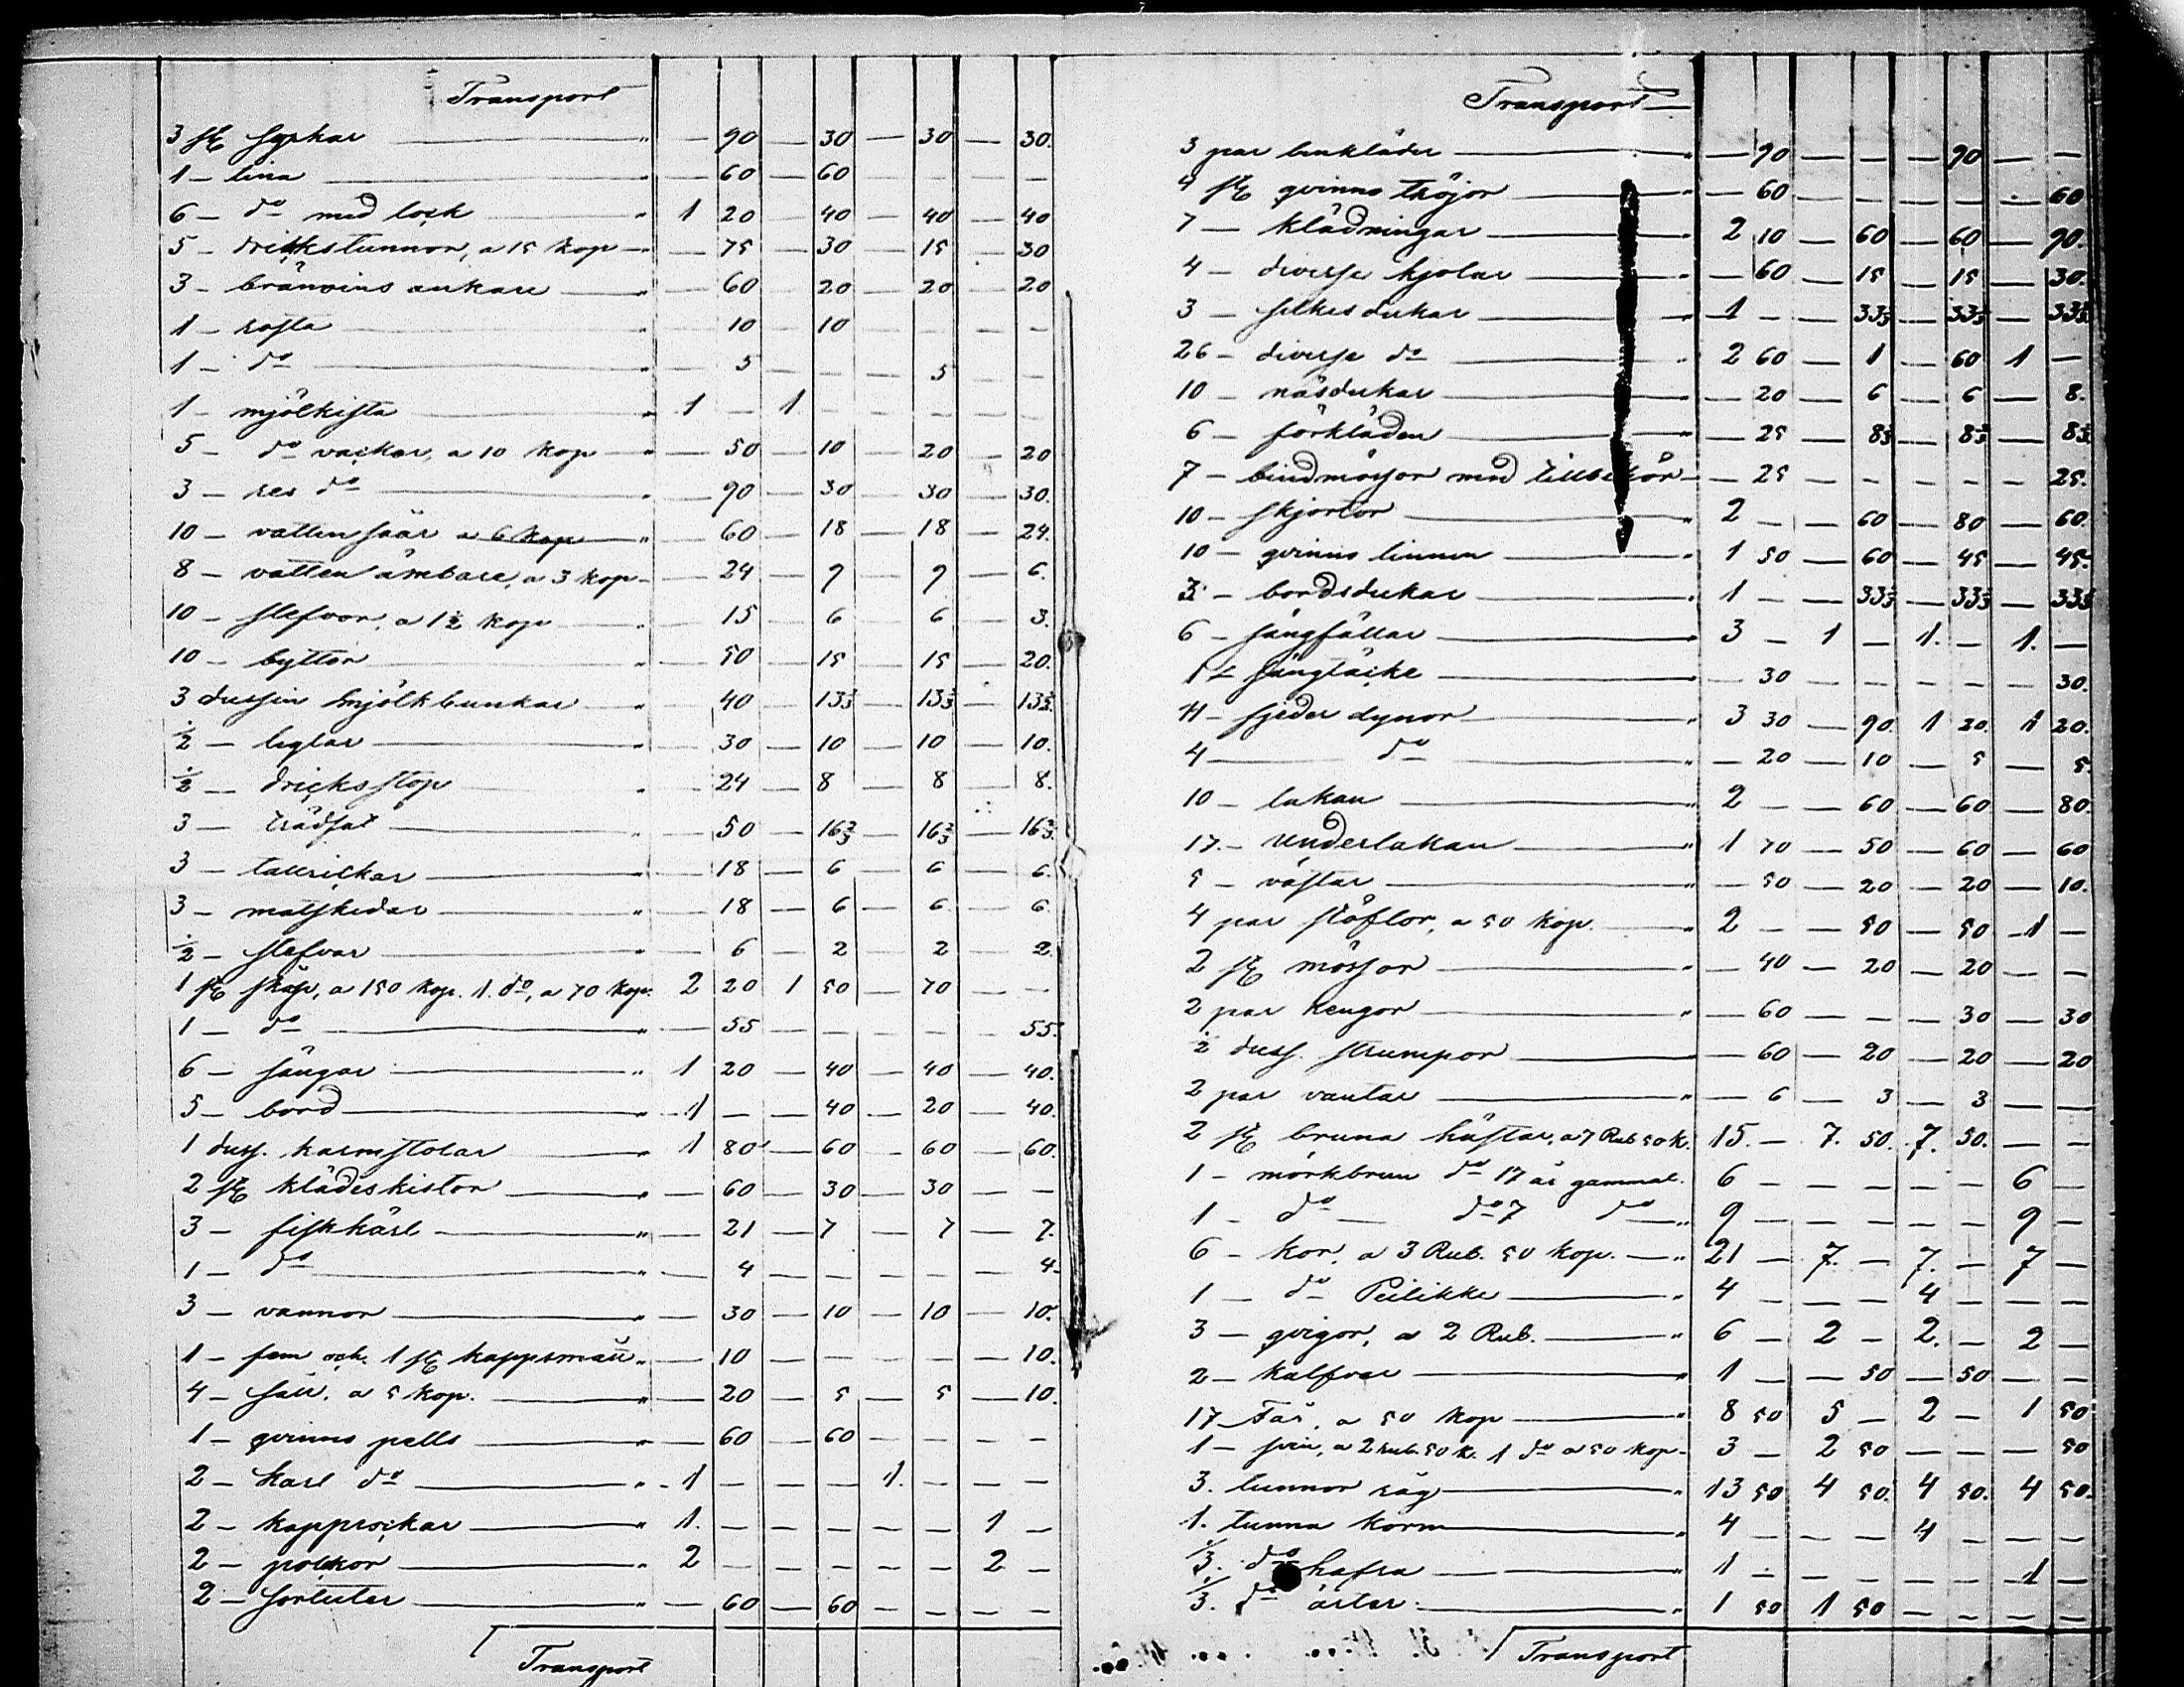 Transport
3 st Sophar " — 90 — 30 — 30 — 30.
1 — tina " — 60 — 60 — — — —
6 — do med lock " 1 20 — 40 — 40 — 40
5 — drickstunnor, a 15 kop — " — 75 — 30 — 15 — 30
3 — bränvins ankare — " — 60 — 20 — 20 — 20
1 — " — 10 — 10 — — — —
1 — do " — 5 — — — 5 — —
1 — mjölkista " 1 — 1 — — — — —
5 — do vackar, a 10 kop — " — 50 — 10 — 20 — 20
3 — res do " — 90 — 30 — 30 — 30.
10 — vatten såar a 6 kop " — 60 — 18 — 18 — 24.
8 — vatten ämbare, a 3 kop — — 24 — 9 — 9 — 6.
10 — slefvor, a 1½ kop " — 15 — 6 — 6 — 3.
10 — byttor " — 50 — 15 — 15 — 20.
3 dussin mjölkbunkar " — 40 — 13⅓ — 13⅓ — 13⅓.
½ — " — 30 — 10 — 10 — 10.
½ — dricksstop " — 24 — 8 — 8 — 8.
3 — trädfat " — 50 — 16⅔ — 16⅔ — 16⅔.
3 — tallrickar " — 18 — 6 — 6 — 6.
3 — matskedar " — 18 — 6 — 6 — 6
½ — slefvar " — 6 — 2 — 2 — 2.
1 st skåp, a 150 kop. 1. do, a 70 kop. 2 20 1 50 — 70 — —
1 — do " — 55 — — — — — 55.
6 — sängar " 1 20 — 40 — 40 — 40.
5 — bord " 1 — — 40 — 20 — 40.
1 duss. karmstolar " 1 80 — 60 — 60 — 60.
2 st klädeskistor " — 60 — 30 — 30 — —
3 — fiskkärl " — 21 — 7 — 7 — 7.
1 — do " — 4 — — — — — 4.
3 — vannor " — 30 — 10 — 10 — 10.
1 — och 1 st kappsmått " — 10 — — — — — 10.
4 — såll, a 5 kop. " — 20 — 5 — 5 — 10.
1 — qvinns pells " — 60 — 60 — — — —
2 — karl do " 1 — — — 1. — — —
2 — kapprockar " 1. — — — — — 1 —
2 — polkor " 2 — — — — — 2 —
2 — sortuter " — 60 — 60 — — — —
Transport
Transport
3 par benkläder " — 90 — — — 90 — —
4 st qvinns tröjor " — 60 — — — — — 60
7 — klädningar " 2 10 — 60 — 60 — 90.
4 — diverse kjolar " — 60 — 15 — 15 — 30.
3 — silkes dukar " 1 — — 33⅓ — 33⅓ — 33⅓
26 — diverse do " 2 60 — 1 — 60 1 —
10 — näsdukar " — 20 — 6 — 6 — 8.
6 — förkläden " — 25 — 8⅓ — 8⅓ — 8⅓
7 — bindmössor med tillbehör — — 25 — — — — — 25.
10 — skjortor " 2 — — 60 — 80 — 60.
10 — qvinns linnen " 1 50 — 60 — 45 — 45.
3 — bordsdukar " 1 — — 33⅓ — 33⅓ — 33⅓
6 — sängfällar " 3 — 1 — 1. — 1. —
1 — sängtäcke " — 30 — — — — — 30.
11 — fjeder dynor " 3 30 — 90. 1 20. 1 20.
4 — do " — 20 — 10 — 5 — 5.
10 — lakan " 2 — — 60 — 60 — 80.
17. — underlakan " 1 70 — 50 — 60 — 60
5 — västar " — 50 — 20 — 20 — 10.
4 par stöflor, a 50 kop. " 2 — — 50 — 50 — 1 —
2 st mössor " — 40 — 20 — 20 — —
2 par kengor " — 60 — — — 30 — 30
½ duss. strumpor — 60 — 20 — 20 — 20
2 par vantar " — 6 — 3 — 3 — —
2 st bruna hästar, a 7 Rub 50 k. 15. — 7. 50. 7. 50. — —
1 — mörkbrun do 17 år gammal. 6 — — — — — 6 —
1 — do — do 7 do " 9 — — — — — 9 —
6 — kor, a 3 Rub. 50 kop. — " 21 — 7. — 7. — 7 —
1 — do Peilikke " 4 — — — 4 — — —
3 — qvigor, a 2 Rub. " 6 — 2 — 2. — 2 —
2 — kalfvar " 1 — — 50 — 50 — —
17 — Får, a 50 kop " 8 50 5 — 2 — 1 50
1 — svin, a 2 rub. 50 k. 1 do a 50 kop — 3 — 2 50 — — — 50
3. tunnor råg " 13 50 4 50. 4 50. 4 50.
1. tunna korn " 4 — — — 4 — — —
⅓. do hafra " 1 — — — — — 1 —
⅓. do ärter. " 1 50 1 50 — — — —
Transport